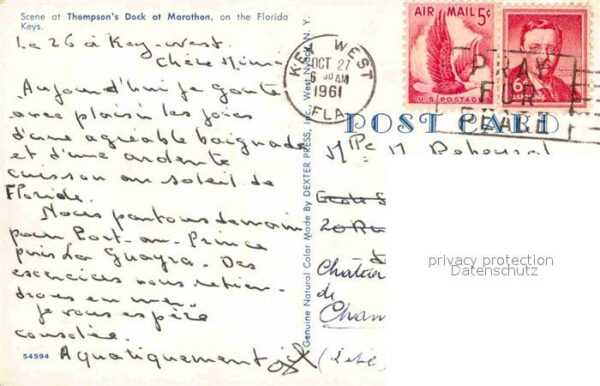 Scene at Thompson's Dock at Marathon, on the Florida
Keys.
Le 26 à Key-West.
Chère Mima
Aujourd'hui je goûte
avec plaisir les joies
d'une agréable baignade
et d'une ardente
cuisson au soleil de
Floride.
Nous partons demain
pour Port-au-Prince
puis La Guayra. Des
exercices nous retien-
drons en mer.
Je vous espère
consolée.
Aquatiquement
54594
Genuine Natural Color Made By DEXTER PRESS, Inc. West Nyack, N. Y.
KEY WEST
OCT 27
6 30 AM
1961
FLA.
AIR MAIL 5¢
U.S. POSTAGE
6¢
PRAY
FOR
PEACE
POST CARD
Mlle M
20 Ru
Chateau
de
Cham
privacy protection
Datenschutz